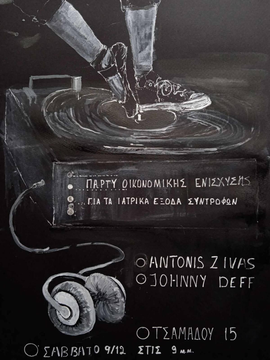 ΠΑΡΤΥ ΟΙΚΟΝΟΜΙΚΗΣ ΕΝΙΣΧΥΣΗΣ
ΓΙΑ ΤΑ ΙΑΤΡΙΚΑ ΕΞΟΔΑ ΣΥΝΤΡΟΦΩΝ
ANTONIS ZIVAS
JOHNNY DEFF
ΤΣΑΜΑΔΟΥ 15
ΣΑΒΒΑΤΟ 9/12 ΣΤΙΣ 9 μ.μ.